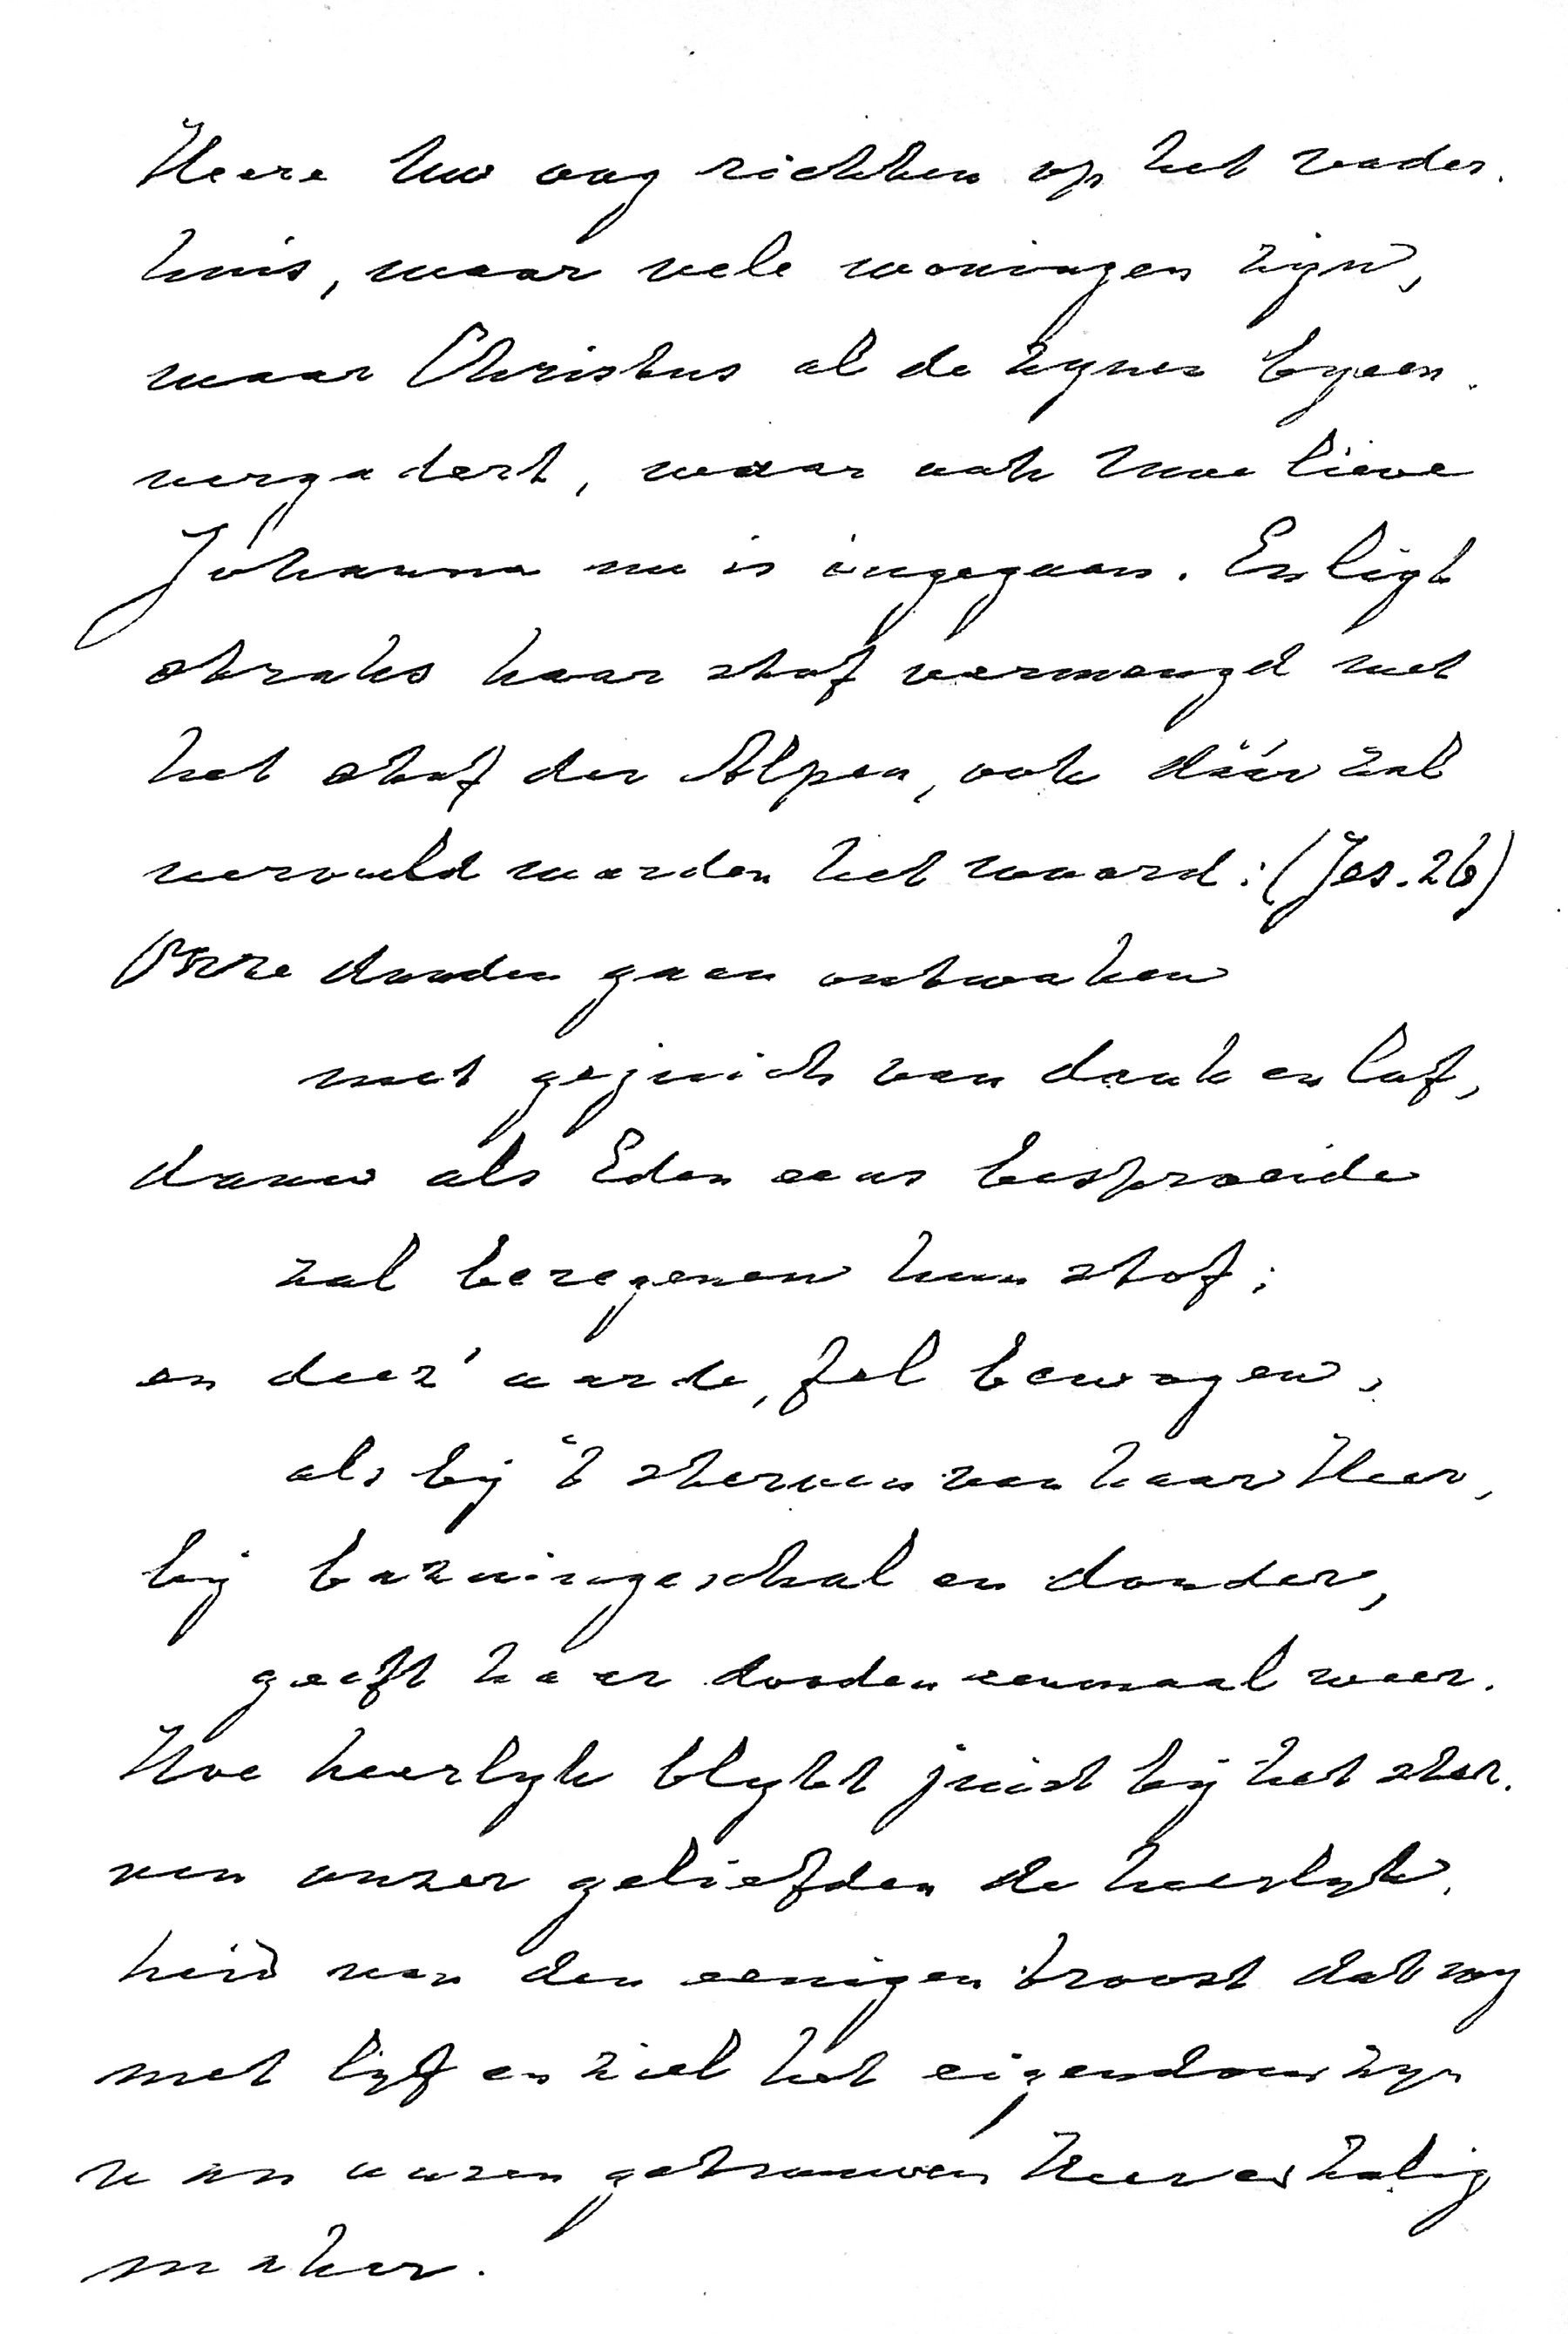 Heere Uw oog richten op het vader-
huis, waar vele woningen zijn,
waar Christus al de zijnen byeen-
vergadert, waar ook Uwe lieve
Johanna nu is ingegaan. En ligt
straks haar stof vermengd met
het stof der Alpen, ook dáár zal
vervuld worden het woord: (Jes. 26)
Onze dooden gaan ontwaken
met gejuich van dank en lof,
dauw als Eden eens besproeide
zal beregenen hun stof;
en deez' aarde, fel bewogen,
als bij 't sterven van haar Heer,
bij bazuingeschal en donder,
geeft haar dooden eenmaal weer.
Hoe heerlyk blykt juist bij het ster-
ven onzer geliefden de heerlyk-
heid van den eenigen troost dat wy
met lijf en ziel het eigendom zyn
van onzen getrouwen Heer en Zalig
maker.